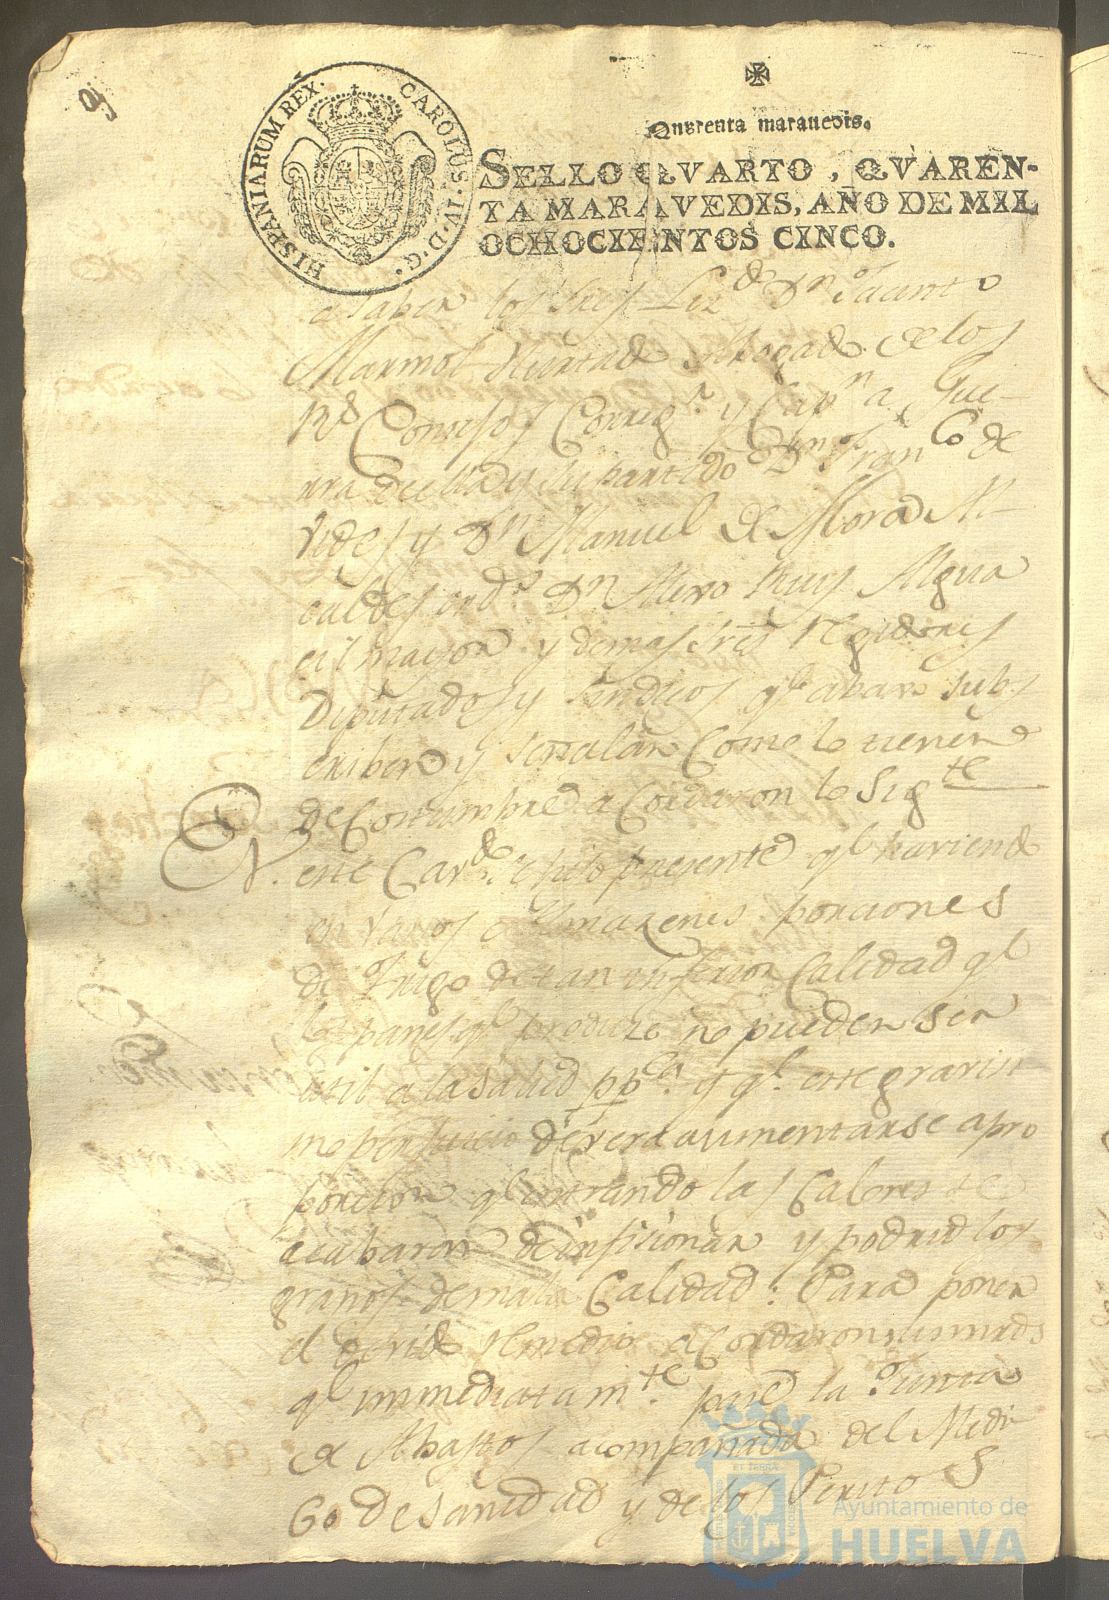 HISPANIARUM REX. CAROLUS·IV·D·G·
Quarenta maravedis.
SELLO QVARTO, QVAREN-
TA MARAVEDIS, AÑO DE MIL
OCHOCIENTOS CINCO.
a saber los Sres Lizdo Dn Jacinto
Marmol Hurtado Abogado de los
Rs Consejos Corregr y Capn a Gue-
rra de ella y su partido Dn Franco de
y Dn Manuel de Mora Al-
caldes ords Dn Ruiz Algua
cil mayor y demas Sres Regidores
Diputados y Sindicos qe abaxo subs
criben y señalan como lo tienen
de costumbre acordaron lo Sigte
N. este Cavdo se hizo presente qe haviendo
en varios Almazenes porciones
de Trigo de tan inferior Calidad qe
los panes qe produze no pueden ser
util a la salud ppca y qe este gravisi
mo perjuicio devera aumentarse a pro
porcion qe entrando las Calores se
acabaron de infisionar y podrir los
granos de mala Calidad: Para poner
el devido remedio acordaron sus mrds
qe immediatamte pase la Junta
de Abastos acompañada del Medi
co de sanidad y de los Peritos
Ayuntamiento de
HUELVA